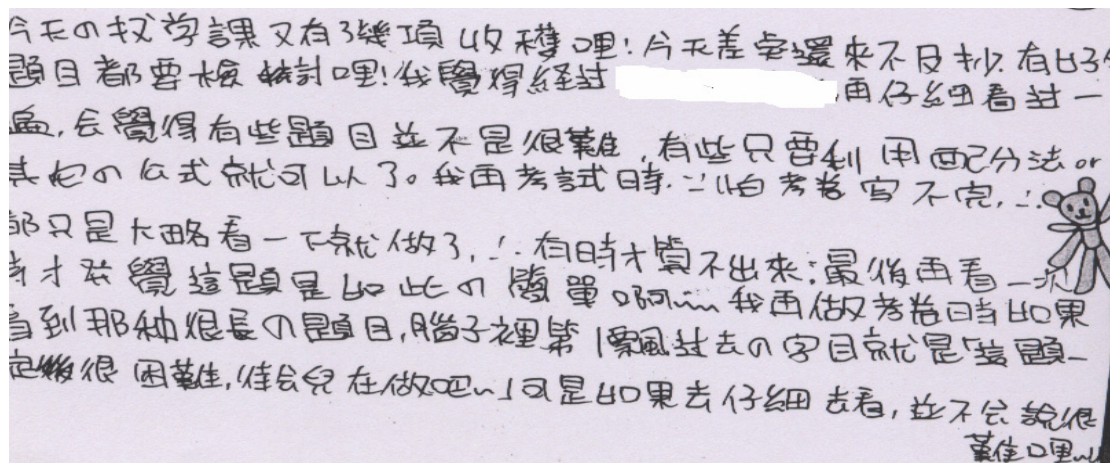 今天の扙学課又有了幾項收穫哩!今天差點還來不及抄.有好多
題目都要檢 檢討哩!我覺得經过 再仔細看过一
遍,会覺得有些題目並不是很難,有些只要利用配分法or
其他の公式就可以了。我再考試時∵怕考卷寫不完,∴
都只是大略看一下就做了,∴有時才算不出來;最後再看一次
時才發覺這題是如此の簡單啊~~我再做考卷時如果
看到那种很長の題目,腦子裡第1個飄过去の字目就是「這題一
定很困難,待会兒在做吧~」可是如果去仔細去看,並不会說很
難哩~~